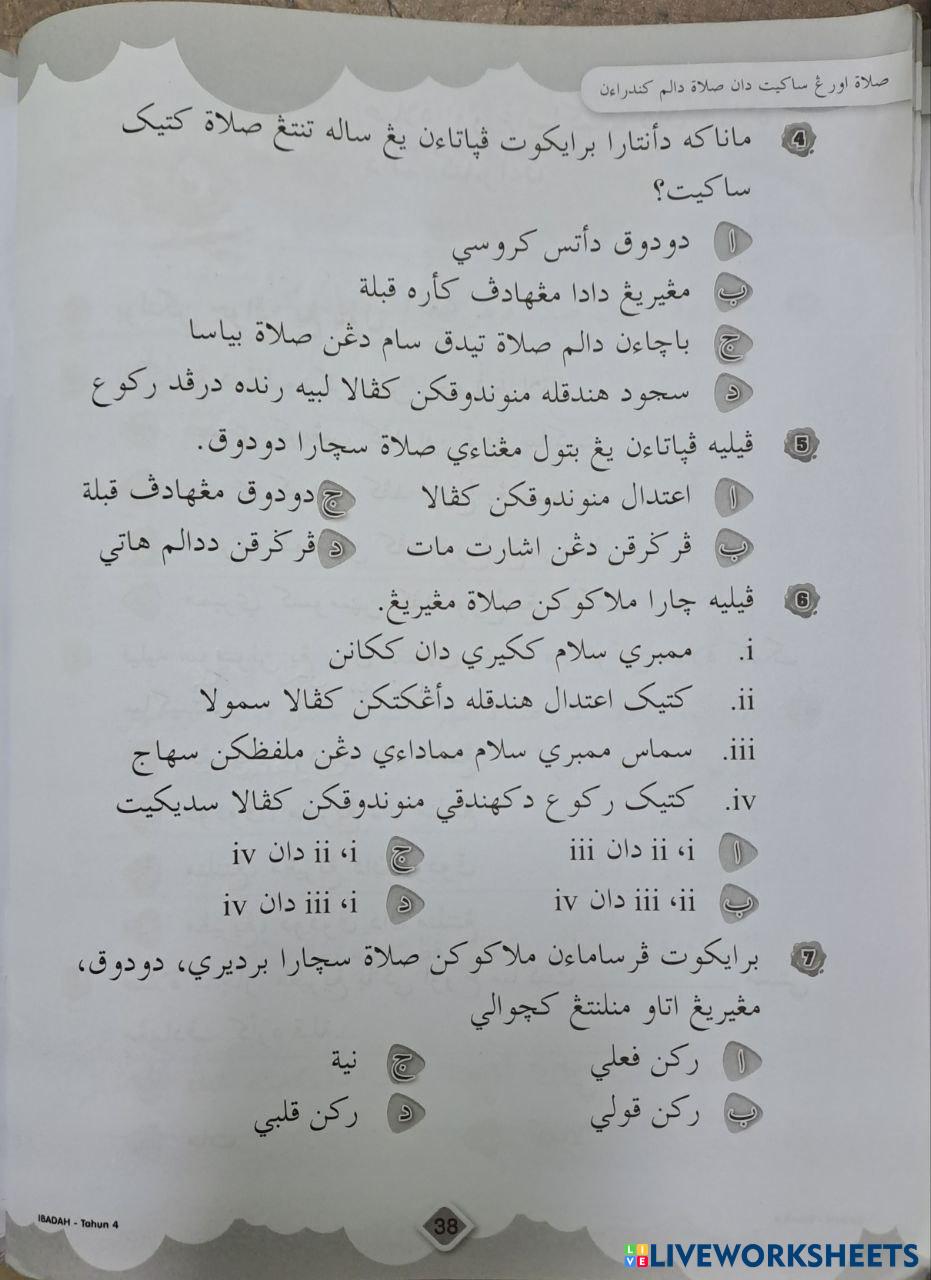 صلاة اورڠ ساکيت دان صلاة دالم کندراءن
4 ماناکه دأنتارا برايکوت ڤڽاتاءن يڠ ساله تنتڠ صلاة کتيک
ساکيت؟
ا دودوق دأتس کروسي
ب مڠيريڠ دادا مڠهادڤ کأره قبلة
ج باچاءن دالم صلاة تيدق سام دڠن صلاة بياسا
د سجود هندقله منوندوقکن کڤالا لبيه رنده درڤد رکوع
5 ڤيليه ڤڽاتاءن يڠ بتول مڠناءي صلاة سچارا دودوق.
ا اعتدال منوندوقکن کڤالا ج دودوق مڠهادڤ قبلة
ب ڤرݢرقن دڠن اشارت مات د ڤرݢرقن ددالم هاتي
6 ڤيليه چارا ملاکوکن صلاة مڠيريڠ.
i. ممبري سلام ککيري دان ککانن
ii. کتيک اعتدال هندقله دأڠکتکن کڤالا سمولا
iii. سماس ممبري سلام مماداءي دڠن ملفظکن سهاج
iv. کتيک رکوع دکهندقي منوندوقکن کڤالا سديکيت
ا i، ii دان iii ج i، ii دان iv
ب ii، iii دان iv د i، iii دان iv
7 برايکوت ڤرساماءن ملاکوکن صلاة سچارا برديري، دودوق،
مڠيريڠ اتاو منلنتڠ کچوالي
ا رکن فعلي ج نية
ب رکن قولي د رکن قلبي
IBADAH - Tahun 4
38
LIVE LIVEWORKSHEETS